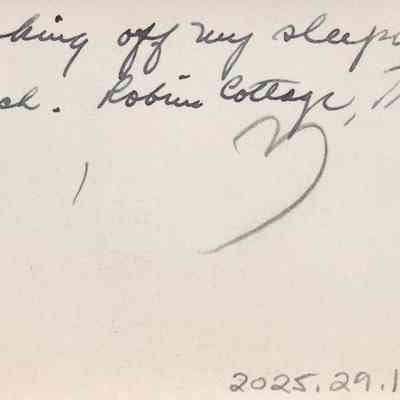 king off my sleepi
ch. Robin Cottage, T
3
2025.29.1